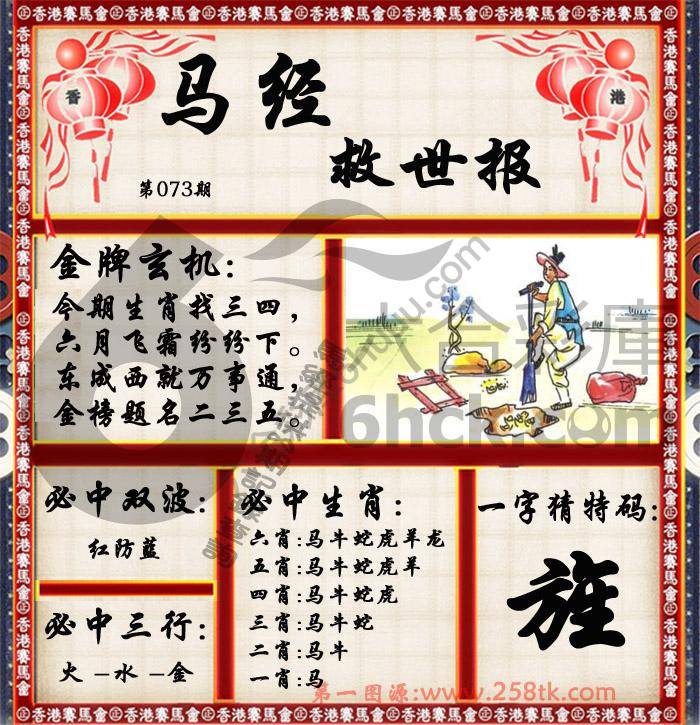 香港賽馬會
香
港
马经
救世报
第073期
金牌玄机:
今期生肖找三四，
六月飞霜纷纷下。
东成西就万事通，
金榜题名二三五。
六合彩庫
6hck.com
必中双波:
红防蓝
必中三行:
火-水-金
必中生肖:
六肖:马牛蛇虎羊龙
五肖:马牛蛇虎羊
四肖:马牛蛇虎
三肖:马牛蛇
二肖:马牛
一肖:马
一字猜特码:
旌
第一图源:www.258tk.com